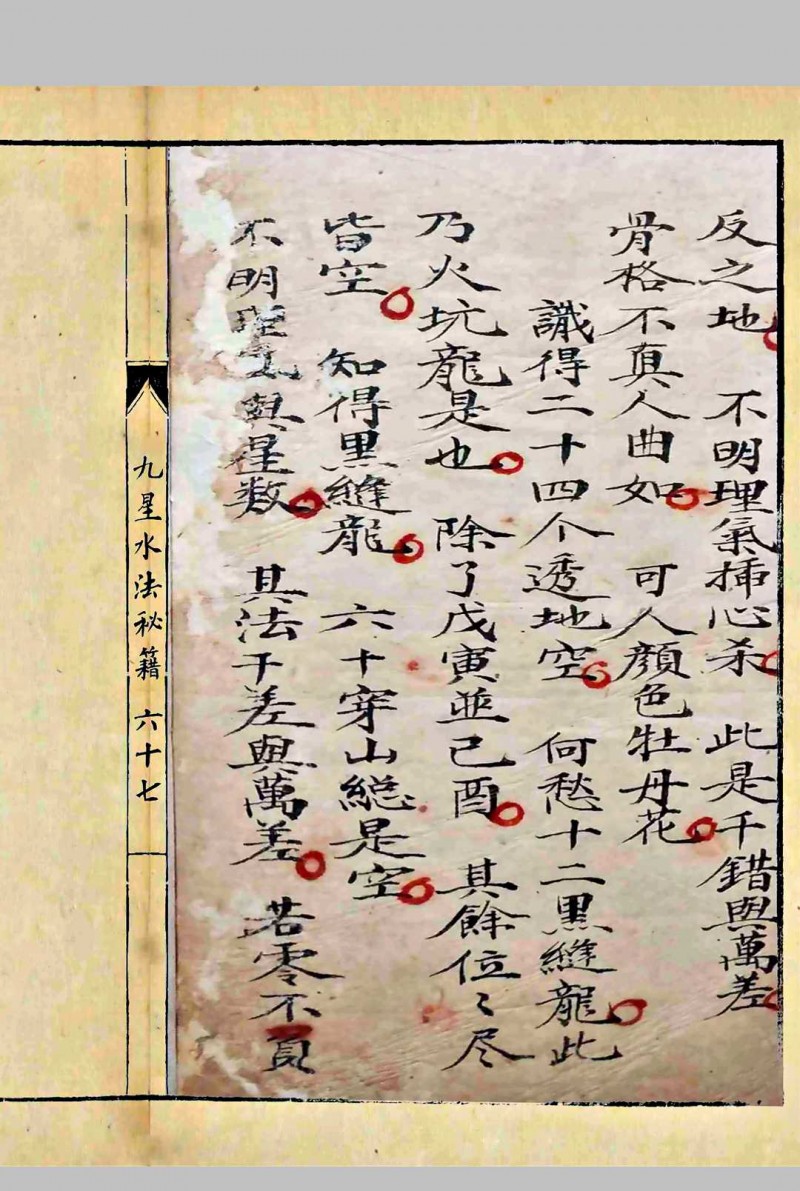 反之地 不明理氣揷心杀 此是千錯與萬差
骨格不真人曲如 可人顔色牡丹花
識得二十四个透地空 何愁十二黑縫龍此
乃火坑龍是也 除了戊寅並己酉 其餘位〻尽
皆空 知得黑縫龍 六十穿山総是空
不明理氣與星数 其法千差與萬差 若零不員
九星水法秘籍 六十七